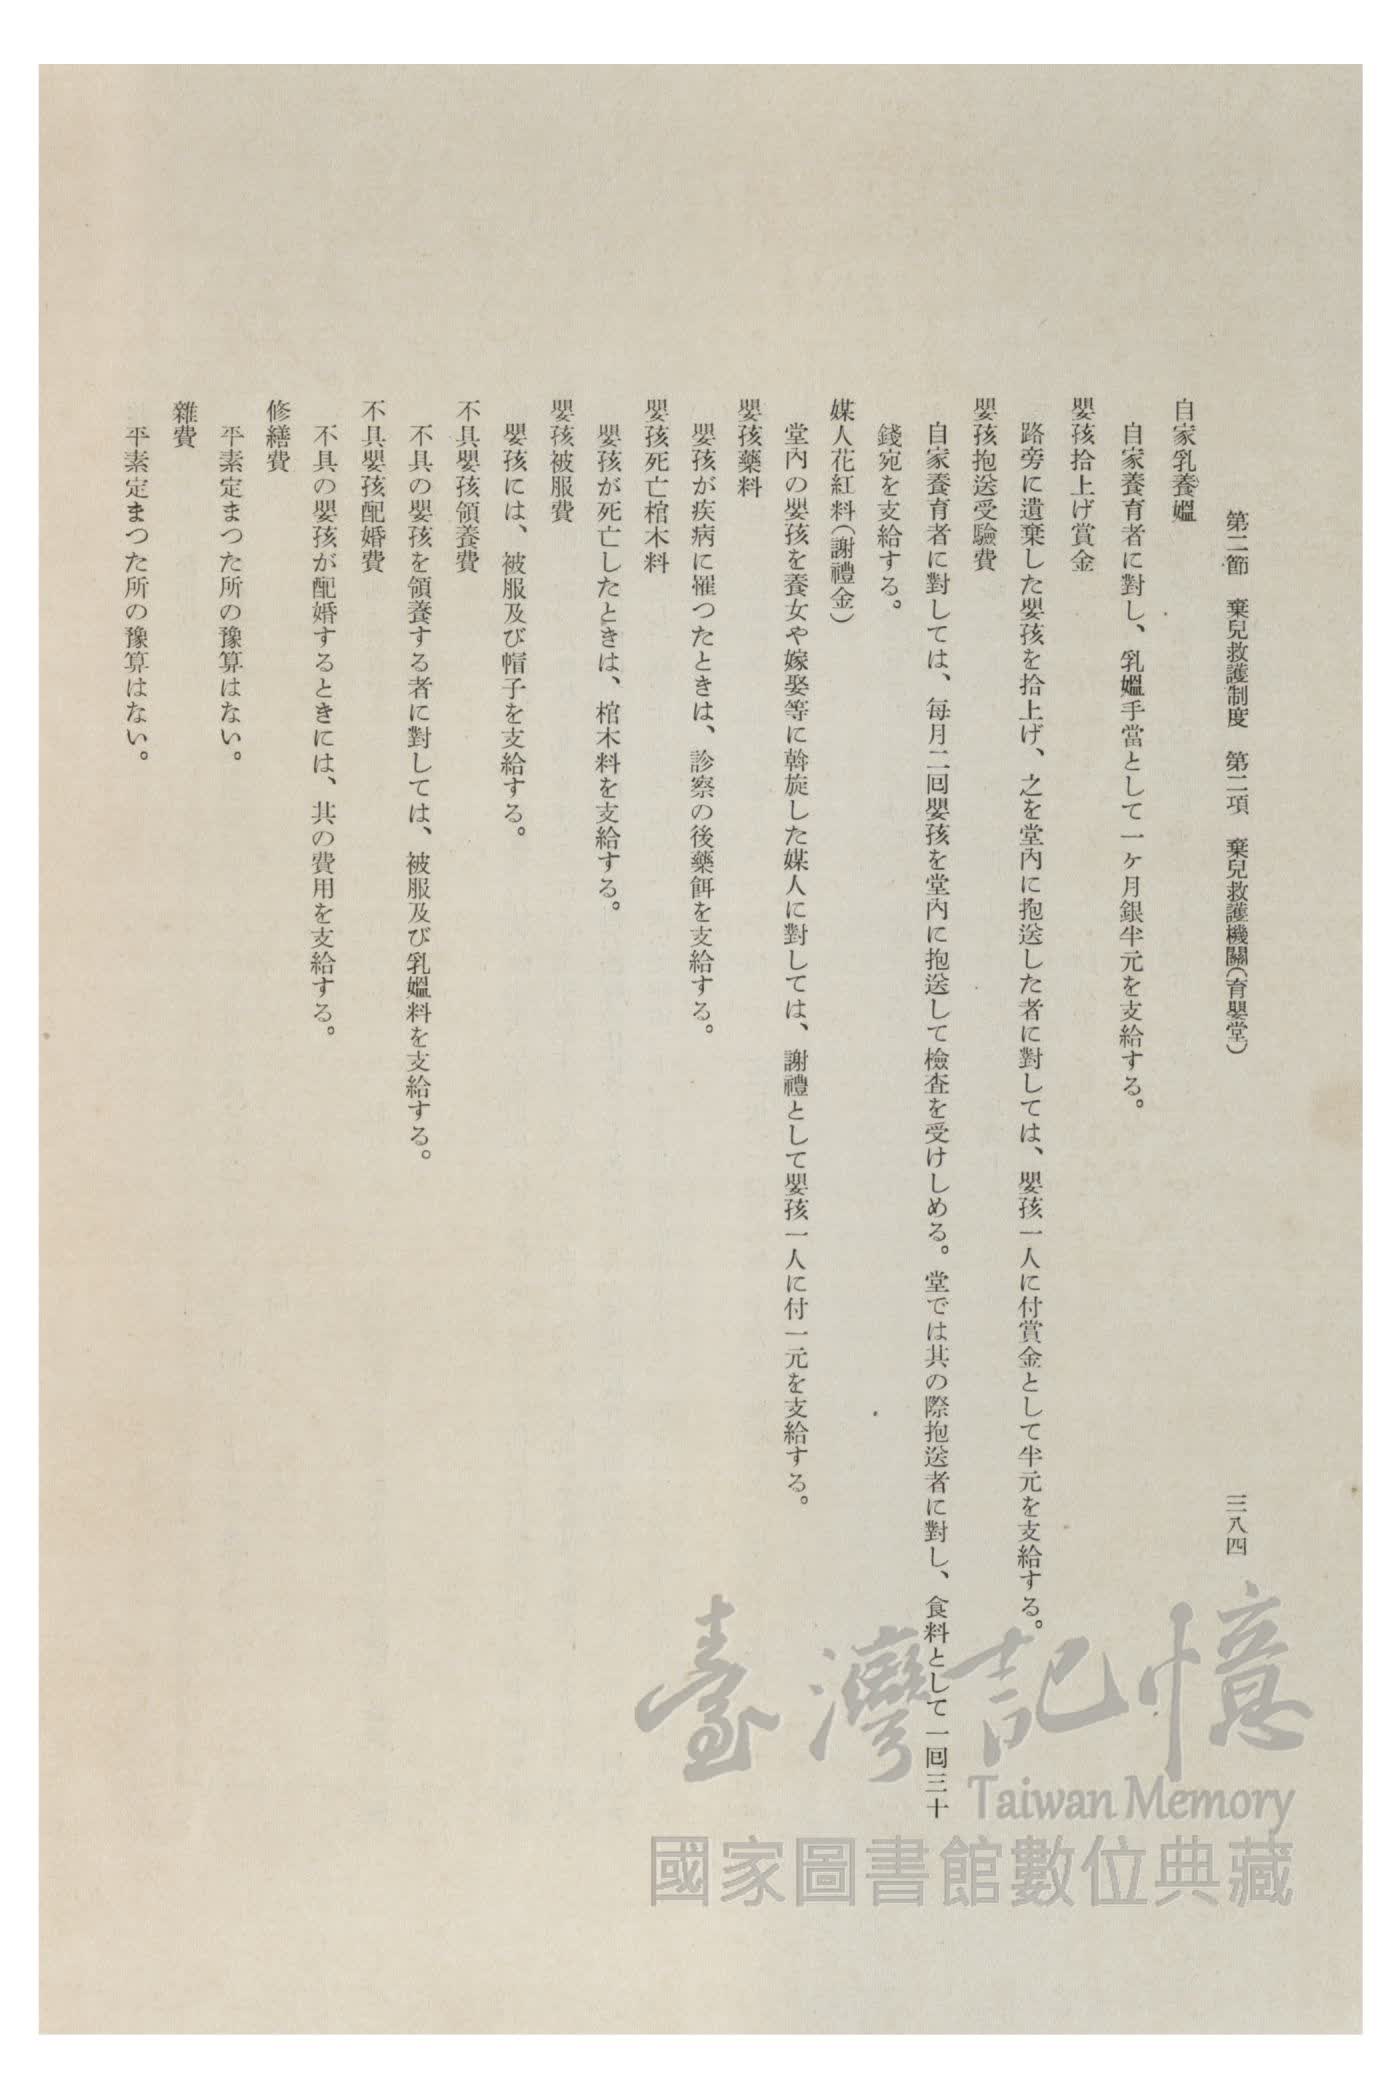 第二節　棄兒救護制度　第二項　棄兒救護機關(育嬰堂)　三八四
自家乳養媼
自家養育者に對し、乳媼手當として一ヶ月銀半元を支給する。
嬰孩拾上げ賞金
路旁に遺棄した嬰孩を拾上げ、之を堂內に抱送した者に對しては、嬰孩一人に付賞金として半元を支給する。
嬰孩抱送受驗費
自家養育者に對しては、每月二囘嬰孩を堂內に抱送して檢査を受けしめる。堂では其の際抱送者に對し、食料として一囘三十
錢宛を支給する。
媒人花紅料(謝禮金)
堂內の嬰孩を養女や嫁娶等に斡旋した媒人に對しては、謝禮として嬰孩一人に付一元を支給する。
嬰孩藥料
嬰孩が疾病に罹つたときは、診察の後藥餌を支給する。
嬰孩死亡棺木料
嬰孩が死亡したときは、棺木料を支給する。
嬰孩被服費
嬰孩には、被服及び帽子を支給する。
不具嬰孩領養費
不具の嬰孩を領養する者に對しては、被服及び乳媼料を支給する。
不具嬰孩配婚費
不具の嬰孩が配婚するときには、其の費用を支給する。
修繕費
平素定まつた所の豫算はない。
雜費
平素定まつた所の豫算はない。
臺灣記憶
Taiwan Memory
國家圖書館數位典藏